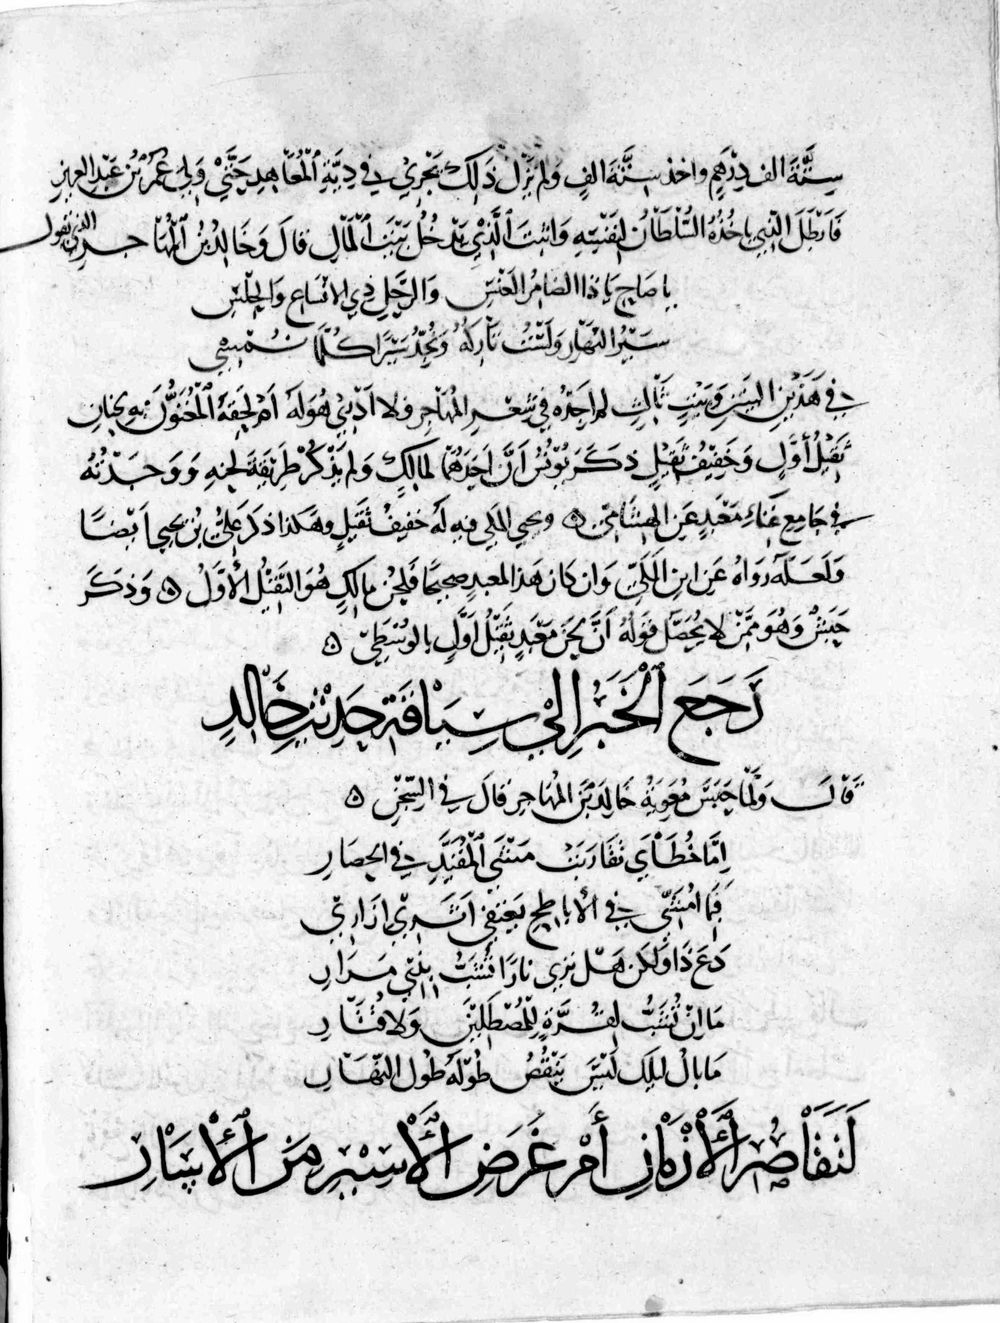 ستَّةَ الف درهم واخذ ستَّةَ الفٍ ولم يزل ذلك يجري في ديةِ المُعَاهدِ حتَّى وَلِي عُمَرُ بنُ عَبد العزيز
فَابْطَل الذي ياخُذُهُ السُّلطانُ لنفسِهِ وَاثبتَ الَّذي يَدخُلُ بَيْتَ المَالِ قالَ وَخَالِدُ بنُ المُهَاجر الذي يقول
يا صَاحِ يَا ذَا الضامُرِ العَنْسِ وَالرَّحلِ ذِي الانسَاعِ وَالحِلْسِ
سَيْرُ النَهَارِ وَلَسْتَ تَارِكَهُ وَتُجِدُّ سَيْرًا كُلَّمَا تُمْسِي
في هَذَيْنِ البيتَيْن وَبَيْتٍ ثَالِثٍ لم اجدْهُ في شعرِ المُهَاجِرِ ولا ادْرِي هُوَ لَهُ أَمْ لحِقَهُ المُغَنُّونَ بهِ لحنانِ
ثَقِيلٌ أوَّلٌ وَخَفِيفُ ثَقِيلٍ ذكَرَ يُونُسُ أنَّ احَدَهُمَا لمالكٍ وَلم يَذكُرْ طَرِيقَةَ لحنِهِ وَوَجَدْتُهُ
في جامِعِ غناءِ مَعْبَدٍ عن الهشامي ٥ ويحيى المكي فيه لَه خفيفُ ثَقِيلٍ وهكذا ذكرَ عَلِيُّ بن يحيى ايضًا
وَلَعَلَّهُ رَوَاهُ عَن ابن المكّيِّ وَان كان هَذا لمعبدٍ صحيحًا فلحنُ مالكٍ هُوَ الثقِيلُ الأوَّلُ ٥ وَذكَرَ
حَبَشٌ وَهُوَ ممَّنْ لا يُحصَّلُ قولُهُ أنَّ لحنَ مَعْبَدٍ ثقيلٌ اوَّلُ بالوُسْطَى ٥
رَجَعَ الْخَبَرُ إلى سِيَاقَةِ حَدِيثِ خَالِدٍ
قال وَلَمَّا حَبَسَ مُعَوِيةُ خَالِدَ بْنَ المُهاجر قال في السِّجْنِ ٥
إمَّا خُطَايَ تَقَارَبَتْ مَشْيَ المُقَيَّدِ في الحِصَارِ
فَبِمَا امْشي في الأبَاطحِ يَقتفي اثَرِي إزَارِي
دَعْ ذَا وَلكِن هَلْ تَرَى نارًا تُشَبُّ بِذِي مَرَارِ
مَا انْ تُشَبُّ لِقُرَّةٍ لِلْمُصْطَلِينَ وَلا قُتَارِ
مَا بَالُ لَيلِكَ لَيْسَ يَنْقُصُ طُوْلُهُ طُولَ النَّهَارِ
لَتَقَاصُرِ الأزْمَانِ أمْ غَرَضِ الأَسِيْرِ مِنَ الأسَارِ